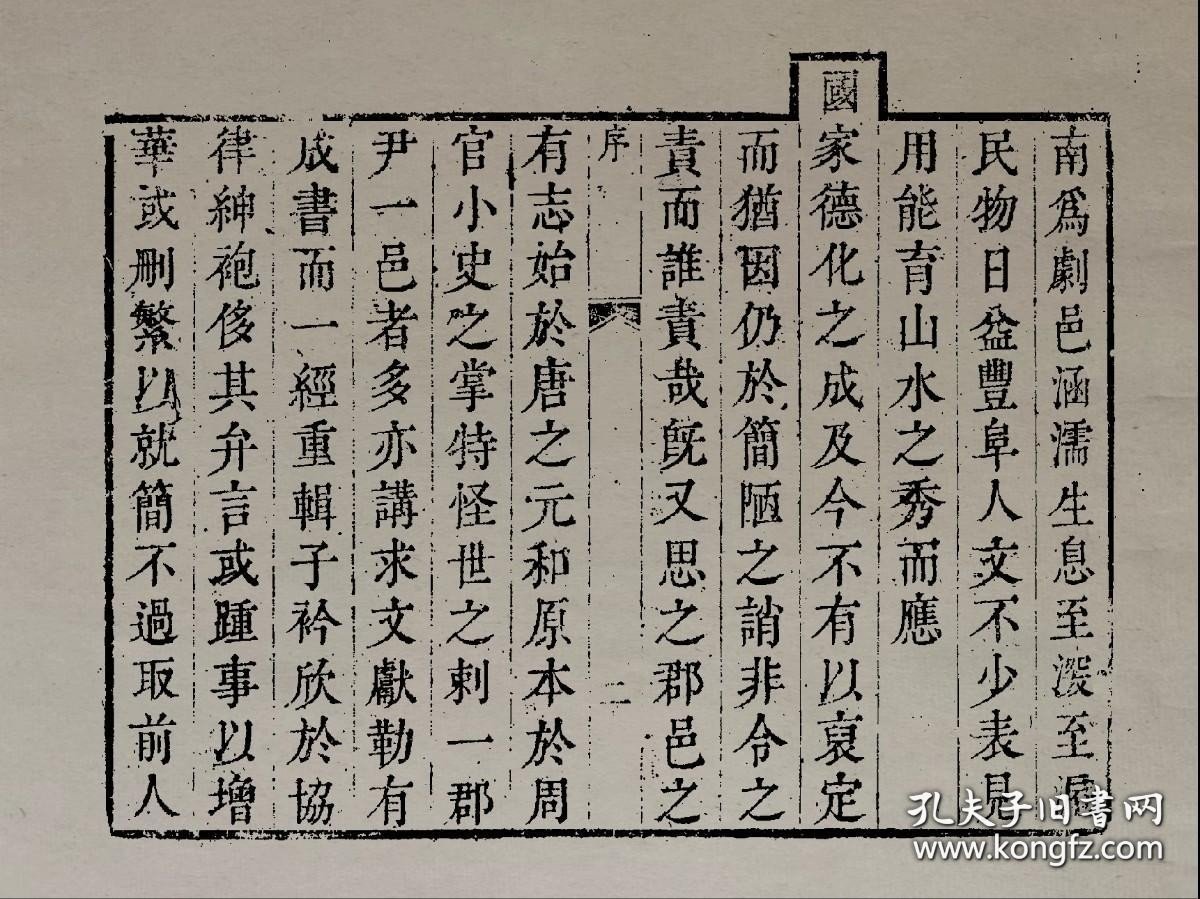 南爲劇邑涵濡生息至深至
民物日益豐阜人文不少表見
用能育山水之秀而應
國家德化之成及今不有以裒定
而猶因仍於簡陋之誚非令之
責而誰責哉旣又思之郡邑之
序
二
有志始於唐之元和原本於周
官小史之掌特怪世之剌一郡
尹一邑者多亦講求文獻勒有
成書而一經重輯子衿欣於協
律紳袍侈其弁言或踵事以增
華或刪繁以就簡不過取前人
孔夫子旧书网
www.kongfz.com